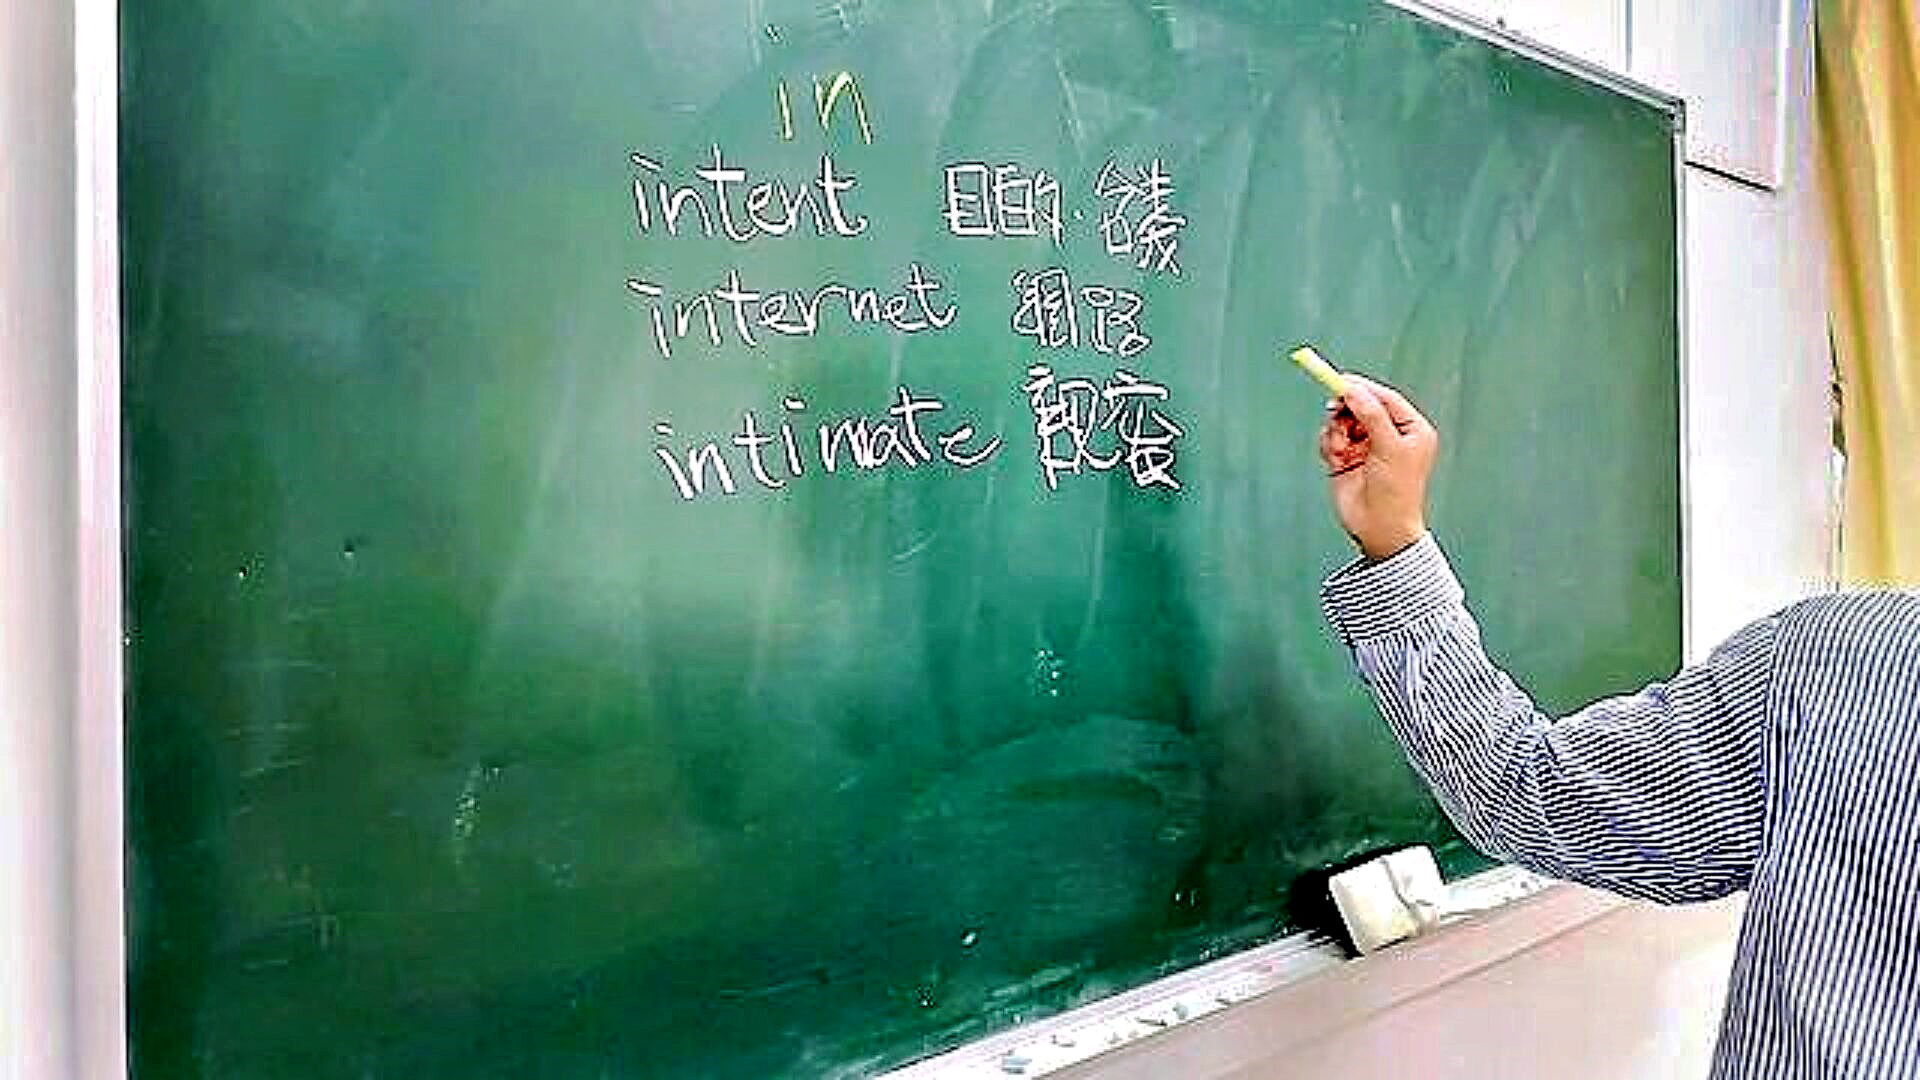 in
intent 目的.
internet 網路
intimate 親密